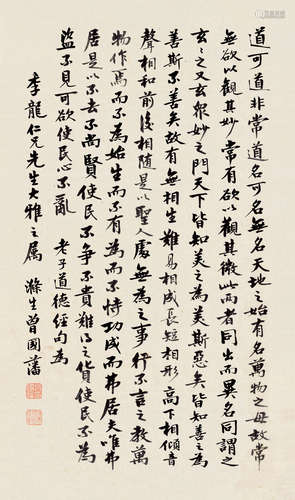 道可道非常道名可名無名天地之始有名萬物之母故常
無欲以觀其妙常有欲以觀其徼此兩者同出而異名同謂之
玄之又玄眾妙之門天下皆知美之為美斯惡矣皆知善之為
善斯不善矣故有無相生難易相成長短相形高下相傾音
聲相和前後相隨是以聖人處無為之事行不言之教萬
物作焉而不為始生而不有為而不恃功成而弗居夫唯弗
居是以不去不尚賢使民不爭不貴難得之貨使民不為
盜不見可欲使民心不亂 老子道德經句為
季龍仁兄先生大雅之属 滌生曾國藩